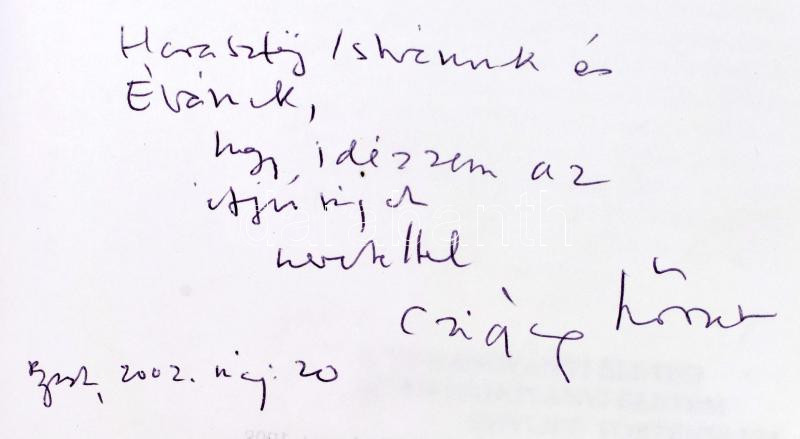 Haraszty Istvánnak és
Évának,
hogy idézzem az
ifjúságot
szeretettel
Czigány Lóránt
Bpest, 2002. máj. 20
darabanth